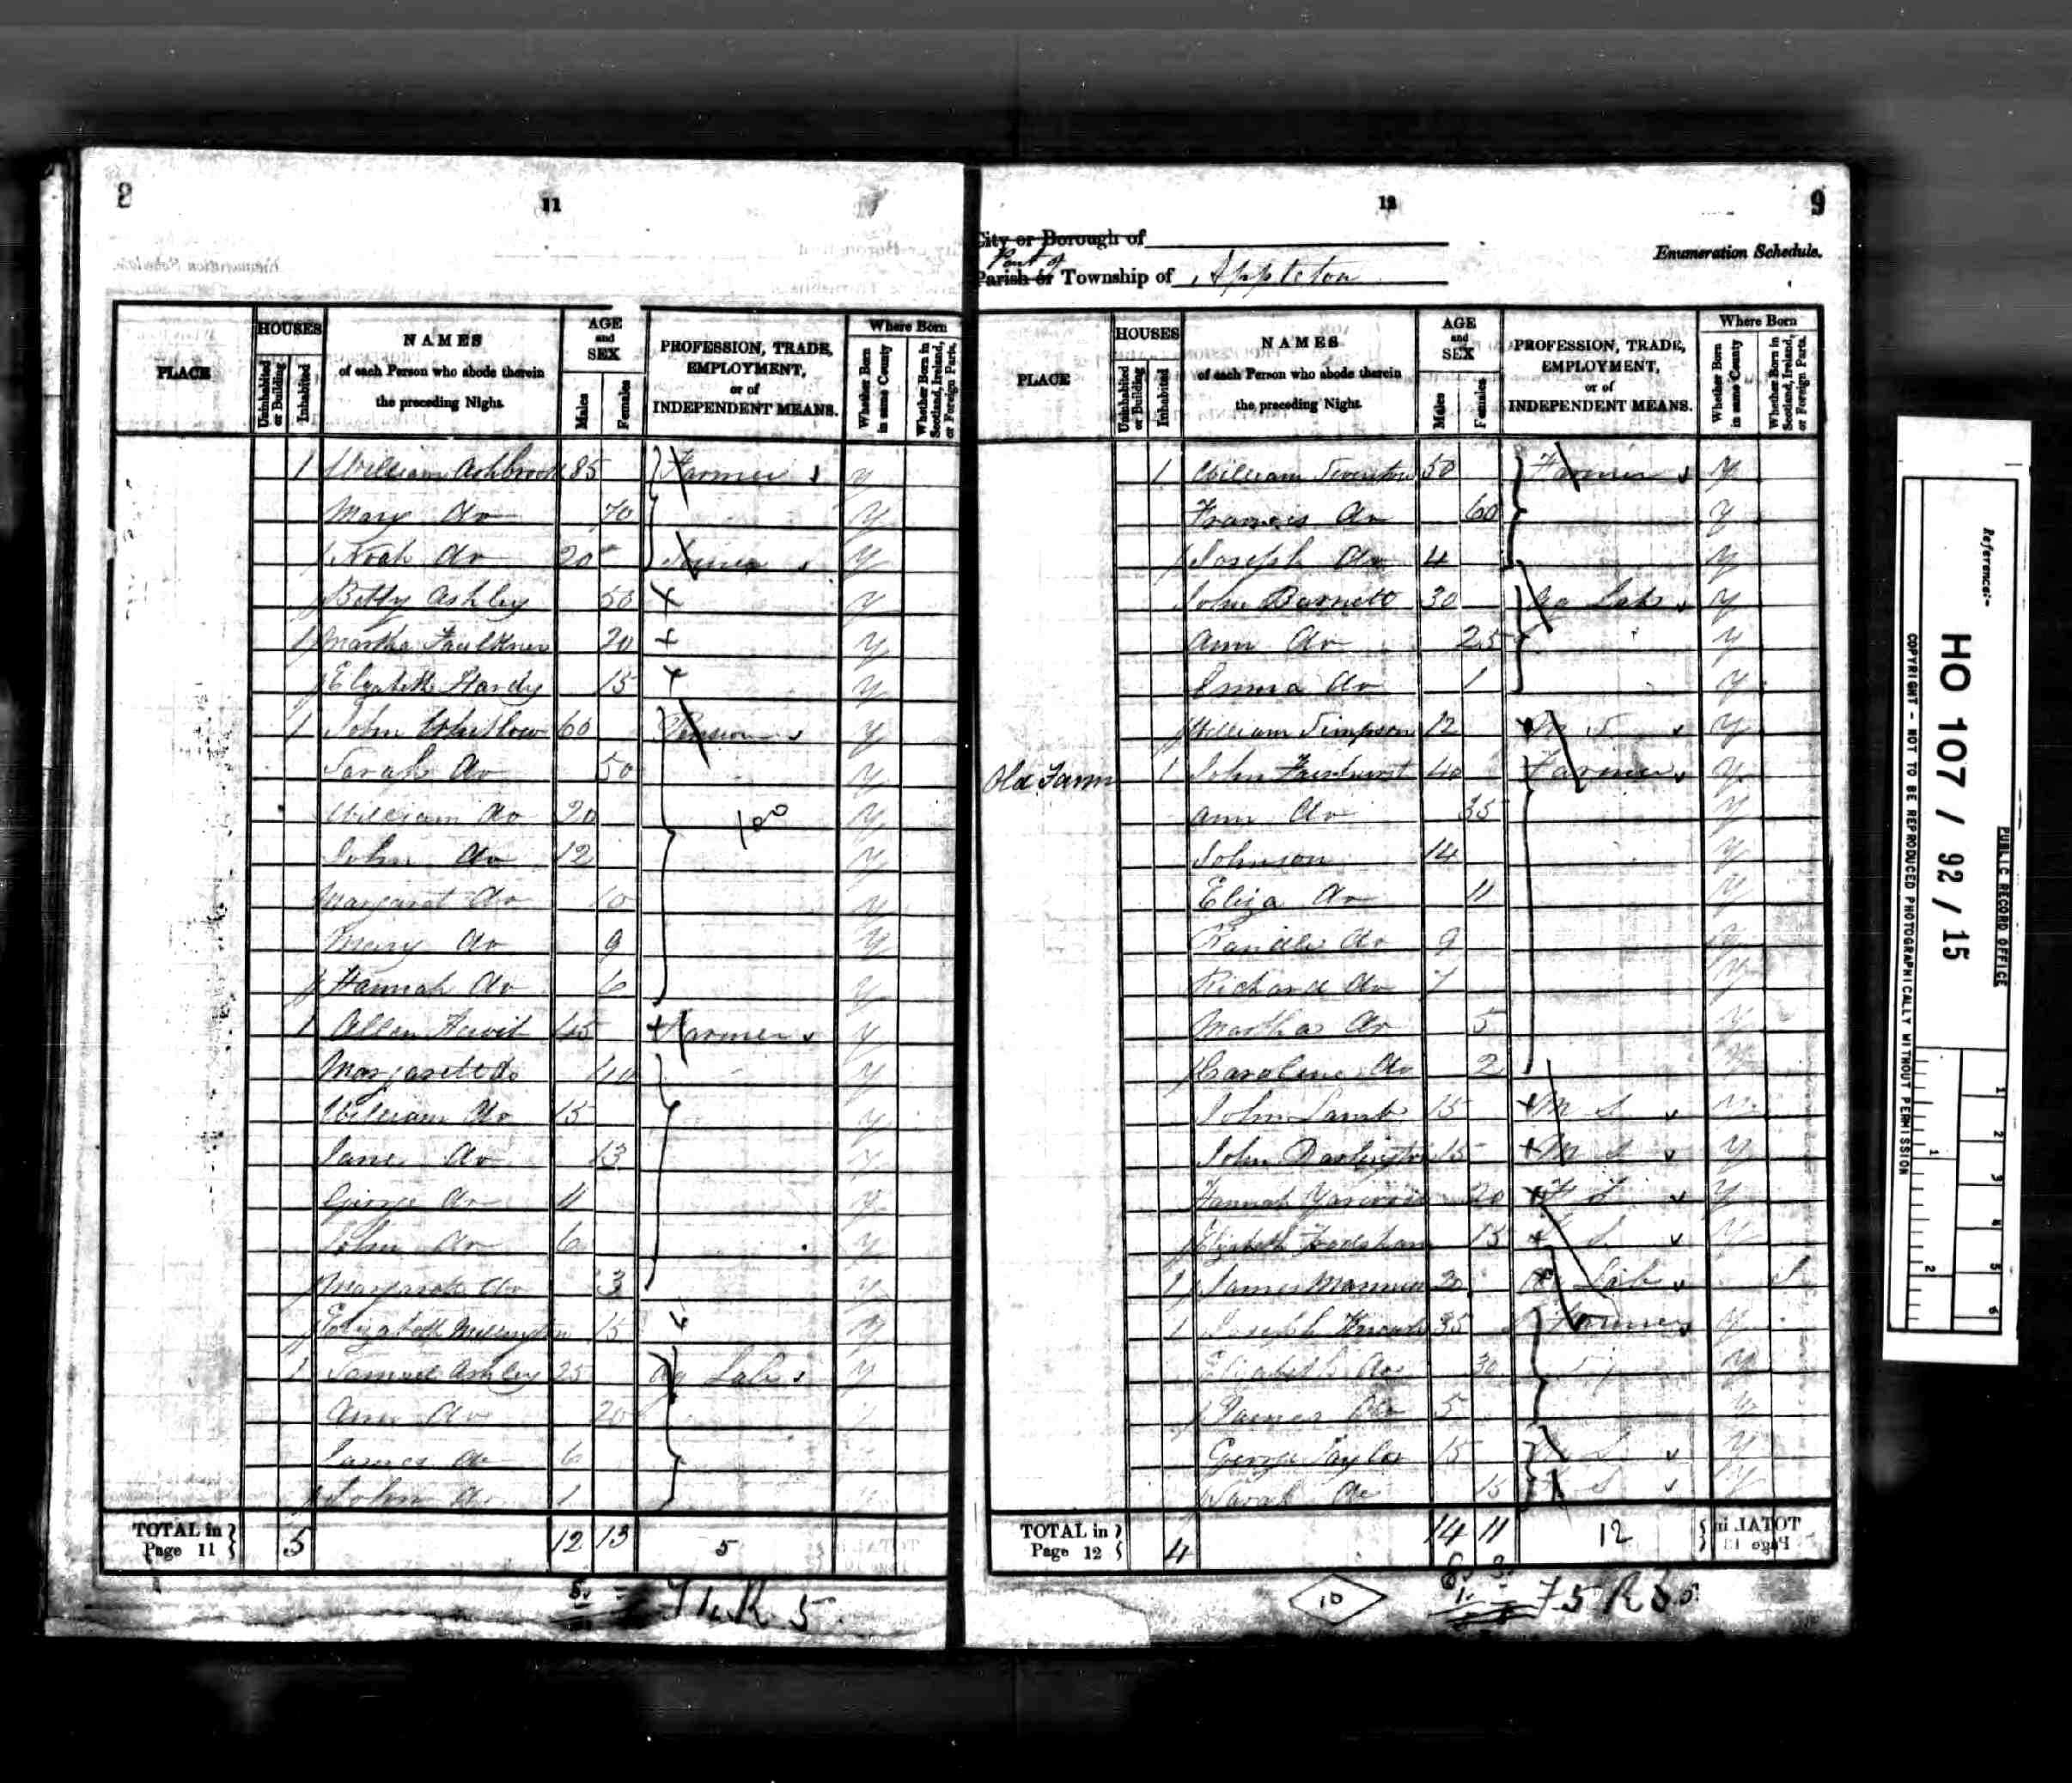 8
11
HOUSES
NAMES
AGE
and
SEX
PROFESSION, TRADE,
EMPLOYMENT,
or of
INDEPENDENT MEANS.
Where Born
PLACE
Uninhabited or Building
Inhabited
of each Person who abode therein
the preceding Night.
Males
Females
Whether Born in same County
Whether Born in Scotland, Ireland, or Foreign Parts.
1 William Ashbrook 85 Farmer Y
Mary do 70 Y
Noah do 20 Y
Betty Ashley 50 Y
Martha Faulkner 20 Y
Elizabeth Hardy 15 Y
1 John 60 Pension Y
Sarah do 50 Y
William do 20 Y
John do 12 Y
Margaret do 10 Y
Mary do 9 Y
Hannah do 6 Y
1 Allen 45 Farmer Y
Margaret do 40 Y
William do 15 Y
Jane do 13 Y
George do 11 Y
John do 6 Y
Margaret do 3 Y
Elizabeth Millington 15 Y
1 Samuel Ashley 25 Ag Lab Y
Ann do 20 Y
James do 6
John do 1
TOTAL in Page 11 5 12 13 5
12
9
City or Borough of
Part of
Parish or Township of Appleton
Enumeration Schedule.
HOUSES
NAMES
AGE
and
SEX
PROFESSION, TRADE,
EMPLOYMENT,
or of
INDEPENDENT MEANS.
Where Born
PLACE
Uninhabited or Building
Inhabited
of each Person who abode therein
the preceding Night.
Males
Females
Whether Born in same County
Whether Born in Scotland, Ireland, or Foreign Parts.
1 William 50 Farmer Y
Francis do 60 Y
Joseph do 4 Y
John Barnett 30 Ag Lab Y
Ann do 25 Y
Emma do 1 Y
William Simpson 12 M S Y
Old Farm 1 John Fairhurst 40 Farmer Y
Ann do 35 Y
Johnson 14 Y
Eliza do 11 Y
Randle do 9 Y
Richard do 7 Y
Martha do 5 Y
Caroline do 2 Y
John Lamb 15 M S Y
John Darlington 15 M S Y
Hannah 20 F S Y
Elizabeth 15 F S Y
1 James 30 Ag Lab I
1 Joseph 35 Farmer Y
Elizabeth do 30 Y
James do 5 Y
George Taylor 15 M S Y
Sarah do 15 F S Y
TOTAL in Page 12 4 14 11 12
10
Reference:-
HO 107 / 92 / 15
PUBLIC RECORD OFFICE
COPYRIGHT - NOT TO BE REPRODUCED PHOTOGRAPHICALLY WITHOUT PERMISSION
1 2 3 4 5 6
1 2